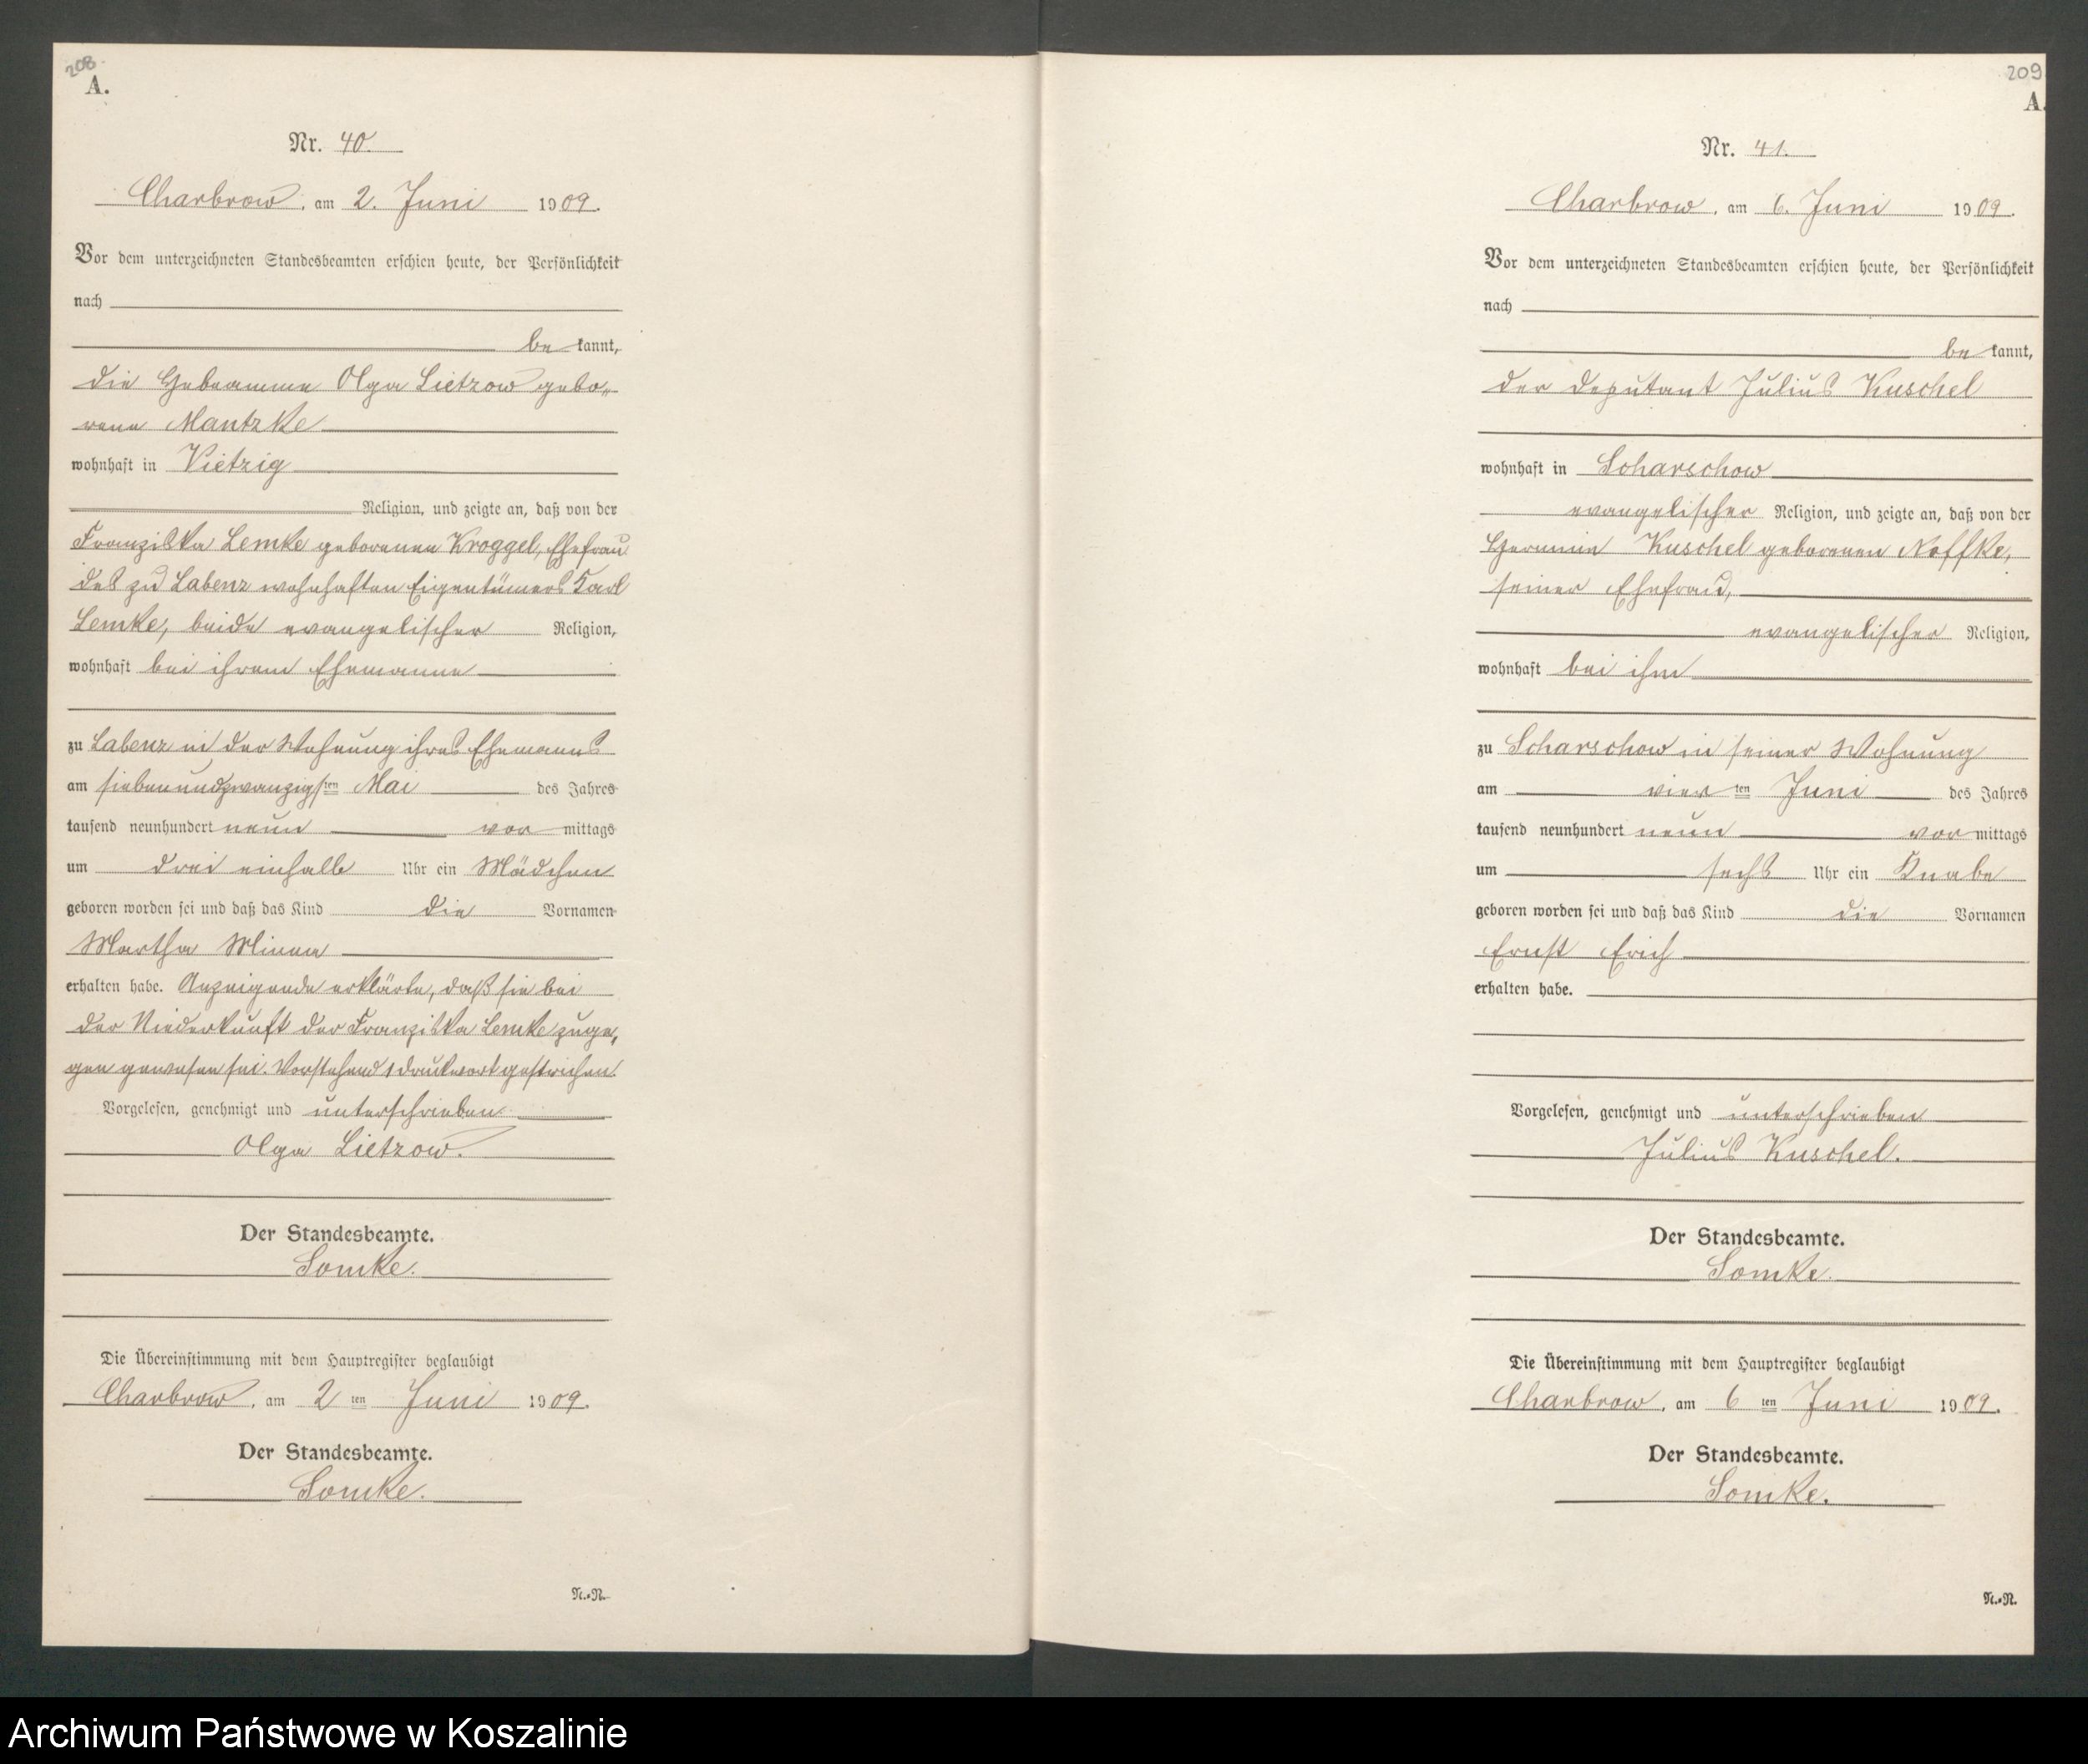 208.
A.
Nr. 40.
Charbrow, am 2. Juni 1909.
Vor dem unterzeichneten Standesbeamten erschien heute, der Persönlichkeit
nach
be kannt,
die Hebeamme Olga Lietzow gebo„
rene Mantzke
wohnhaft in Vietzig
Religion, und zeigte an, daß von der
Franziska Lemke geborenen Kroggel, Ehefrau
des zu Labenz wohnhaften Eigentümers Karl
Lemke, beide evangelischer Religion,
wohnhaft bei ihrem Ehemanne
zu Labenz in der Wohnung ihres Ehemanns
am siebenundzwanzigsten Mai des Jahres
tausend neunhundert neun vor mittags
um drei einhalb Uhr ein Mädchen
geboren worden sei und daß das Kind die Vornamen
Martha Minna
erhalten habe. Anzeigende erklärte, daß sie bei
der Niederkunft der Franziska Lemke zuge„
gen gewesen sei. Vorstehend 1 Druckwort gestrichen.
Vorgelesen, genehmigt und unterschrieben
Olga Lietzow.
Der Standesbeamte.
Somke.
Die Übereinstimmung mit dem Hauptregister beglaubigt
Charbrow, am 2 ten Juni 1909.
Der Standesbeamte.
Somke.
N.-N.
209
A.
Nr. 41.
Charbrow, am 6. Juni 1909.
Vor dem unterzeichneten Standesbeamten erschien heute, der Persönlichkeit
nach
be kannt,
der Deputant Julius Kuschel
wohnhaft in Scharschow
evangelischer Religion, und zeigte an, daß von der
Hermine Kuschel geborenen Noffke,
seiner Ehefrau,
evangelischer Religion,
wohnhaft bei ihm
zu Scharschow in seiner Wohnung
am vier ten Juni des Jahres
tausend neunhundert neun vor mittags
um sechs Uhr ein Knabe
geboren worden sei und daß das Kind die Vornamen
Ernst Erich
erhalten habe.
Vorgelesen, genehmigt und unterschrieben
Julius Kuschel.
Der Standesbeamte.
Somke.
Die Übereinstimmung mit dem Hauptregister beglaubigt
Charbrow, am 6 ten Juni 1909.
Der Standesbeamte.
Somke.
N.-N.
Archiwum Państwowe w Koszalinie